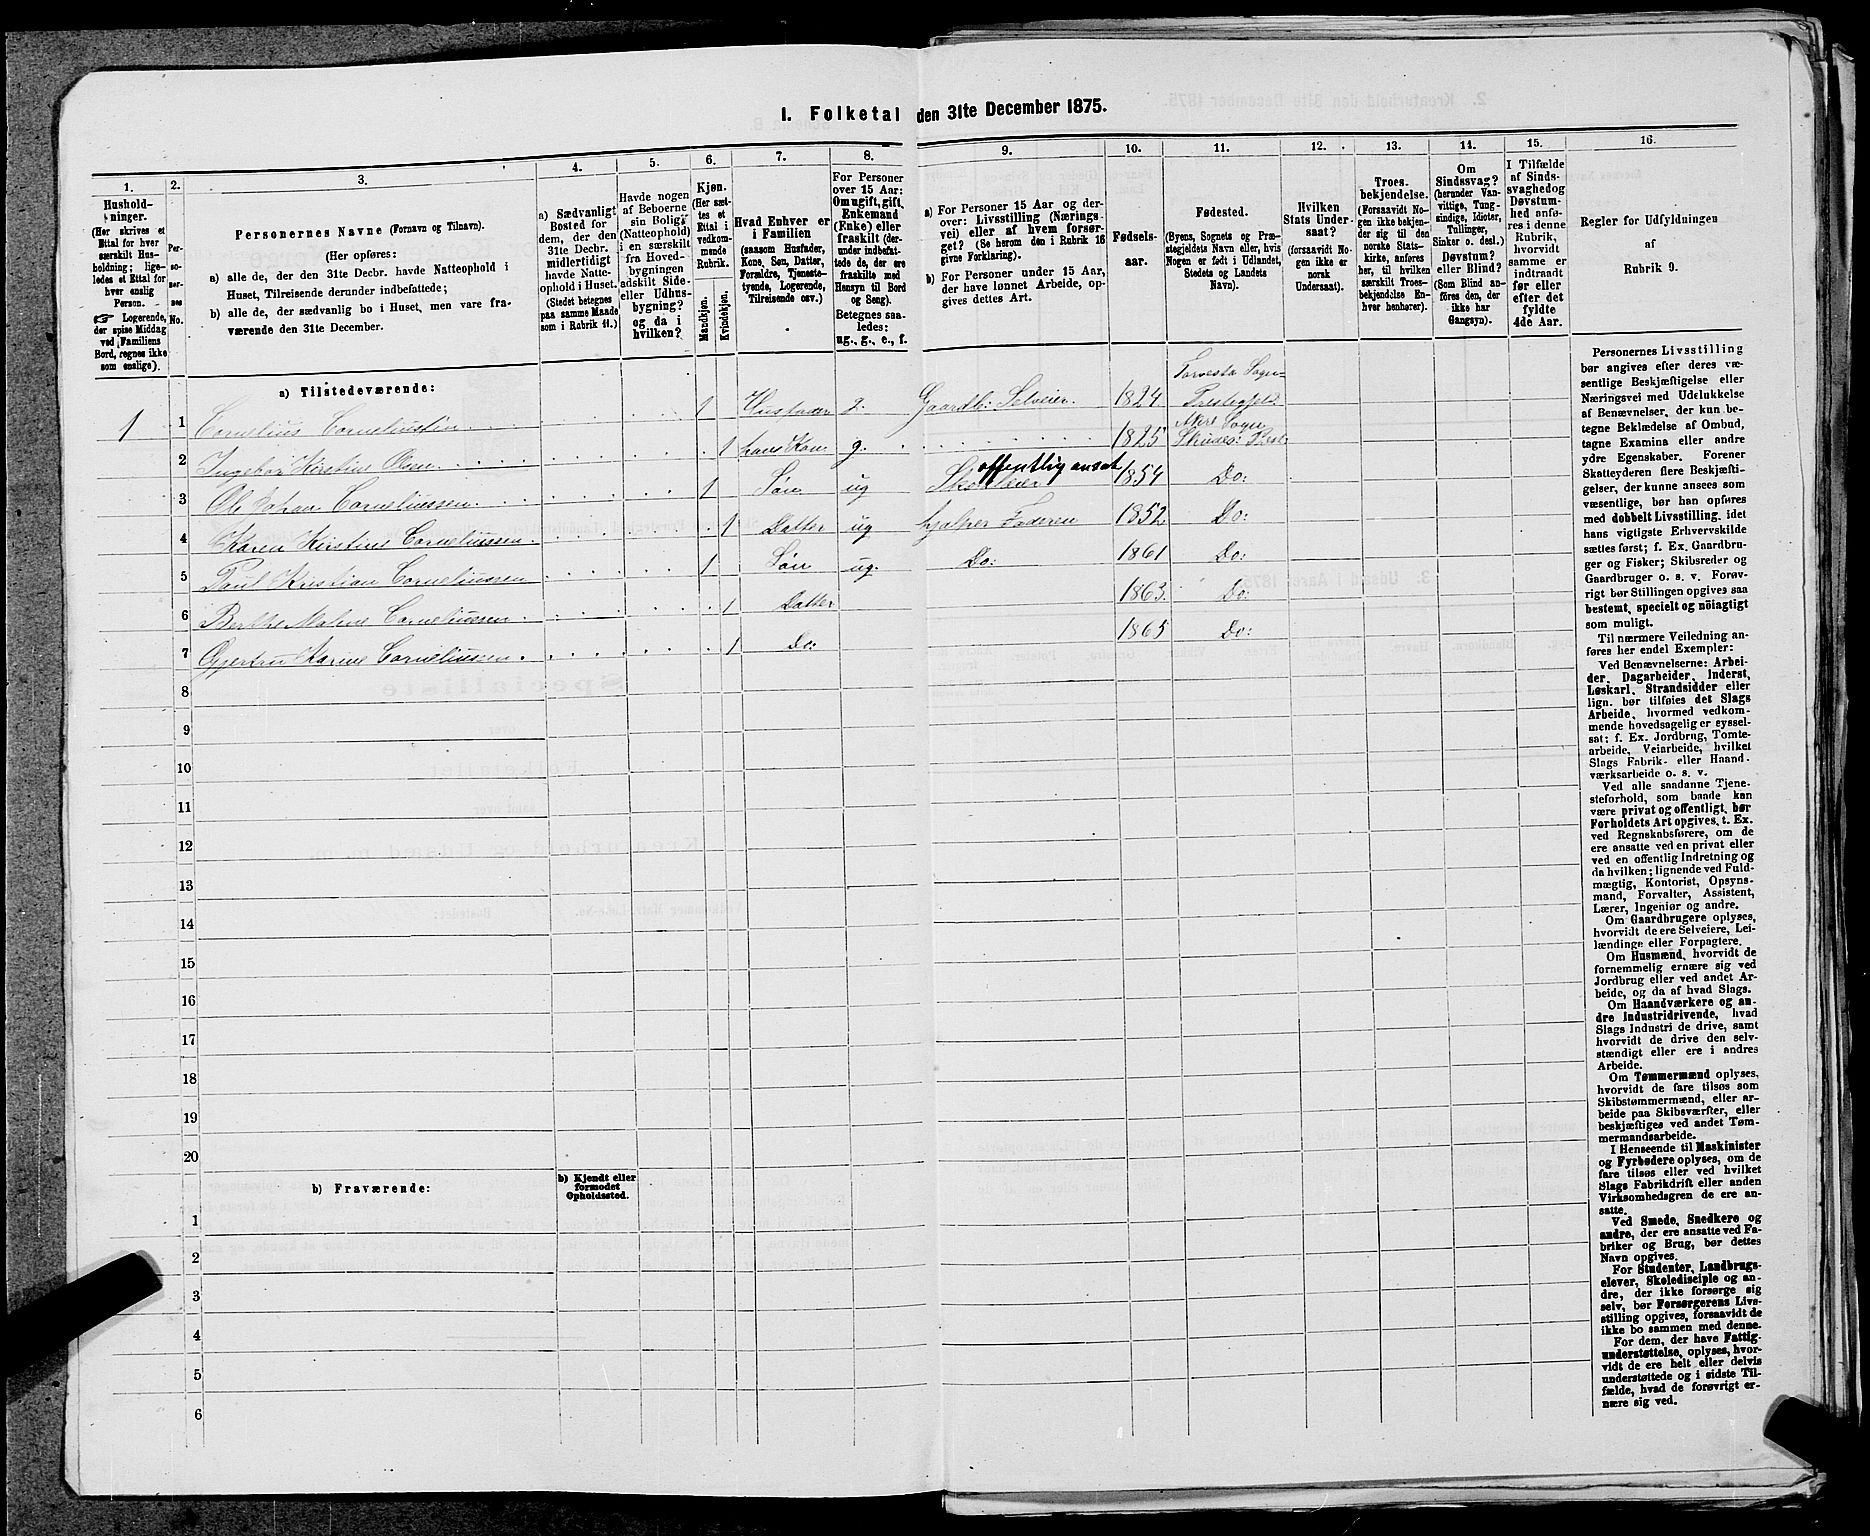 1. Folketal den 31te December 1875.
1.
2.
3.
4.
5.
6.
7.
8.
9.
10.
11.
12.
13.
14.
15.
16.
Hushold-
ninger.
(Her skrives et
Ettal for hver
særskilt Hus-
holdning; lige-
ledes et Ettal for
hver enslig
Person.
☞ Logerende,
der spise Middag
ved Familiens
Bord, regnes ikke
som enslige).
Per-
so-
ner-
nes
No.
Personernes Navne (Fornavn og Tilnavn).
(Her opføres:
a) alle de, der den 31te Decbr. havde Natteophold i
Huset, Tilreisende derunder indbefattede;
b) alle de, der sædvanlig bo i Huset, men vare fra-
værende den 31te December.
a) Sædvanligt
Bosted for
dem, der den
31te Decbr.
midlertidigt
havde Natte-
ophold i Huset.
(Stedet betegnes
paa samme Maade
som i Rubrik 11.)
Havde nogen
af Beboerne
sin Bolig
(Natteophold)
i en særskilt
fra Hoved-
bygningen
adskilt Side-
eller Udhus-
bygning?
og da i
hvilken?
Kjøn.
(Her sæt-
tes et
Ettal i
vedkom-
mende
Rubrik.
Mandkjøn.
Kvindekjøn.
Hvad Enhver er
i Familien
(saasom Husfader,
Kone, Søn, Datter,
Forældre, Tjeneste-
tyende, Logerende,
Tilreisende osv.)
For Personer
over 15 Aar:
Om ugift, gift,
Enkemand
(Enke) eller
fraskilt (der-
under indbefat-
tede de, der ere
fraskilte med
Hensyn til Bord
og Seng).
Betegnes saa-
ledes:
ug., g., e., f.
a) For Personer 15 Aar og der-
over: Livsstilling (Nærings-
vei) eller af hvem forsør-
get? (Se herom den i Rubrik 16
givne Forklaring).
b) For Personer under 15 Aar,
der have lønnet Arbeide, op-
gives dettes Art.
Fødsels-
aar.
Fødested.
(Byens, Sognets og Præ-
stegjeldets Navn eller, hvis
Nogen er født i Udlandet,
Stedets og Landets
Navn).
Hvilken
Stats Under-
saat?
(forsaavidt No-
gen ikke er
norsk
Undersaat).
Troes-
bekjendelse.
(Forsaavidt No-
gen ikke bekjen-
der sig til den
norske Stats-
kirke, anføres
her, til hvilken
særskilt Troes-
bekjendelse En-
hver henhører).
Om
Sindssvag?
(herunder Van-
vittige, Tung-
sindige, Idioter,
Tullinger,
Sinker o. desl.)
Døvstum?
eller Blind?
(Som Blind an-
føres den, der
ikke har
Gangsyn).
I Tilfælde
af Sinds-
svaghed og
Døvstum-
hed anfø-
res i denne
Rubrik,
hvorvidt
samme er
indtraadt
før eller
efter det
fyldte
4de Aar.
Regler for Udfyldningen
af
Rubrik 9.
a) Tilstedeværende:
1 1 Cornelius Corneliussen 1 Husfader g. Gaardb: Selveier 1824 Torvesta Sogn Prestegjeld
2 Ingebor Kirstine Olsen 1 hans Kone g. 1825 Sogn Skudes: Prest:
3 Ole Johan Corneliussen 1 Søn ug offentlig ansat 1854 Do:
4 Karen Kirstine Corneliussen 1 Datter ug hjælper Faderen 1852 Do:
5 Paul Kristian Corneliussen 1 Søn ug. Do: 1861 Do:
6 Berthe Malene Corneliussen 1 Datter 1863 Do:
7 Gjertru Karine Corneliussen 1 Do: 1865 Do:
8
9
10
11
12
13
14
15
16
17
18
19
20
b) Fraværende:
b) Kjendt eller
formodet
Opholdssted.
1
2
3
4
5
6
Personernes Livsstilling
bør angives efter deres væ-
sentlige Beskjæftigelse eller
Næringsvei med Udelukkelse
af Benævnelser, der kun be-
tegne Beklædelse af Ombud,
tagne Examina eller andre
ydre Egenskaber. Forener
Skatteyderen flere Beskjæfti-
gelser, der kunne ansees som
væsentlige, bør han opføres
med dobbelt Livsstilling, idet
hans vigtigste Erhvervskilde
sættes først; f. Ex. Gaardbru-
ger og Fisker; Skibsreder og
Gaardbruger o. s. v. Forøv-
rigt bør Stillingen opgives saa
bestemt, specielt og nøiagtigt
som muligt.
Til nærmere Veiledning an-
føres her endel Exempler:
Ved Benævnelserne: Arbei-
der, Dagarbeider, Inderst,
Løskarl, Strandsidder eller
lign. bør tilføies det Slags
Arbeide, hvormed vedkom-
mende hovedsagelig er syssel-
sat; f. Ex. Jordbrug, Tomte-
arbeide, Veiarbeide, hvilket
Slags Fabrik- eller Haand-
værksarbeide o. s. v.
Ved alle saadanne Tjene-
steforhold, som baade kan
være privat og offentligt, bør
Forholdets Art opgives, t. Ex.
ved Regnskabsførere, om de
ere ansatte ved en privat eller
ved en offentlig Indretning og
da hvilken; lignende ved Fuld-
mægtig, Kontorist, Opsyns-
mand, Forvalter, Assistent,
Lærer, Ingeniør og andre.
Om Gaardbrugere oplyses,
hvorvidt de ere Selveiere, Lei-
lændinge eller Forpagtere.
Om Husmænd, hvorvidt de
fornemmelig ernære sig ved
Jordbrug eller ved andet Ar-
beide, og da af hvad Slags.
Om Haandværkere og an-
dre Industridrivende, hvad
Slags Industri de drive, samt
hvorvidt de drive den selv-
stændigt eller ere i andres
Arbeide.
Om Tømmermænd oplyses,
hvorvidt de fare tilsøs som
Skibstømmermænd, eller ar-
beide paa Skibsværfter, eller
beskjæftiges ved andet Tøm-
mermandsarbeide.
I Henseende til Maskinister
og Fyrbødere oplyses, om de
fare tilsøs eller ved hvilket
Slags Fabrikdrift eller anden
Virksomhedsgren de ere an-
satte.
Ved Smede, Snedkere og
andre, der ere ansatte ved Fa-
briker og Brug, bør dettes
Navn opgives.
For Studenter, Landbrugs-
elever, Skoledisciple og an-
dre, der ikke forsørge sig
selv, bør Forsørgerens Livs-
stilling opgives, forsaavidt de
ikke bo sammen med denne.
For dem, der have Fattig-
understøttelse, oplyses, hvor-
vidt de ere helt eller delvis
understøttede og i sidste Til-
fælde, hvad de forøvrigt er-
nære sig ved.